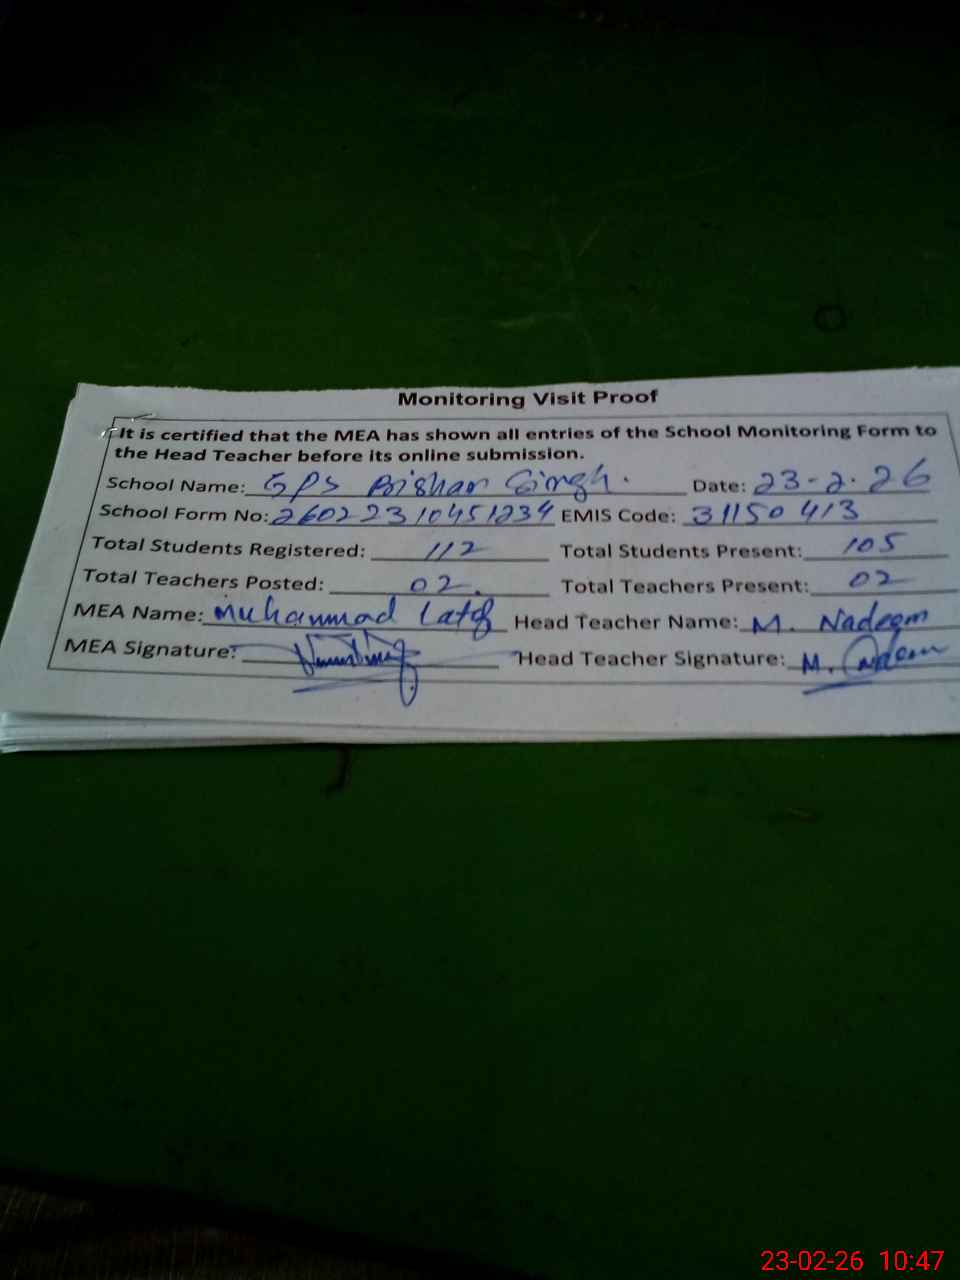 Monitoring Visit Proof
It is certified that the MEA has shown all entries of the School Monitoring Form to
the Head Teacher before its online submission.
School Name: GPS Bishan Singh. Date: 23-2-26
School Form No: 26022310451234 EMIS Code: 31150413
Total Students Registered: 112 Total Students Present: 105
Total Teachers Posted: 02. Total Teachers Present: 02
MEA Name: Muhammad Latif Head Teacher Name: M. Nadeem
MEA Signature: Head Teacher Signature: M. Nadeem
23-02-26 10:47